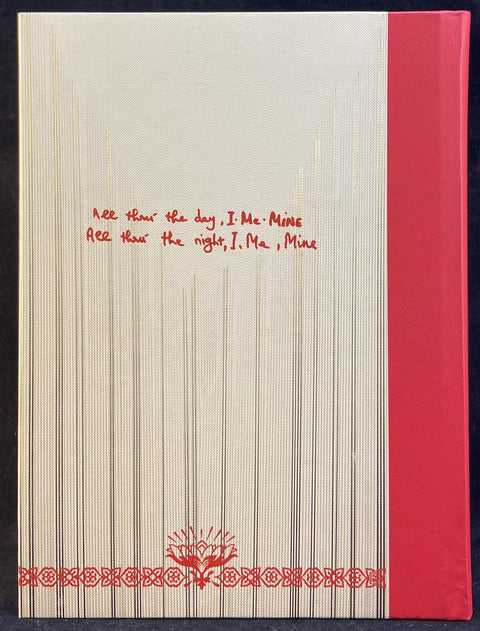 All thru' the day, I·Me·MINE
All thru' the night, I, Me, Mine